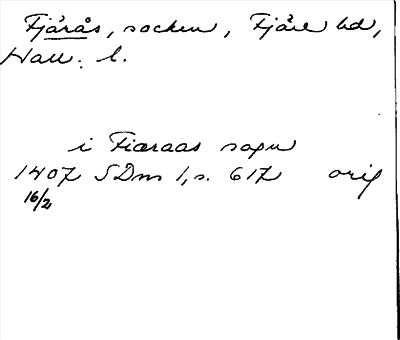 Fjärås, socken, Fjäre hd,
Hall. l.
i Fiæraas sogn
1407 SDns 1, s. 617 orig
16/2